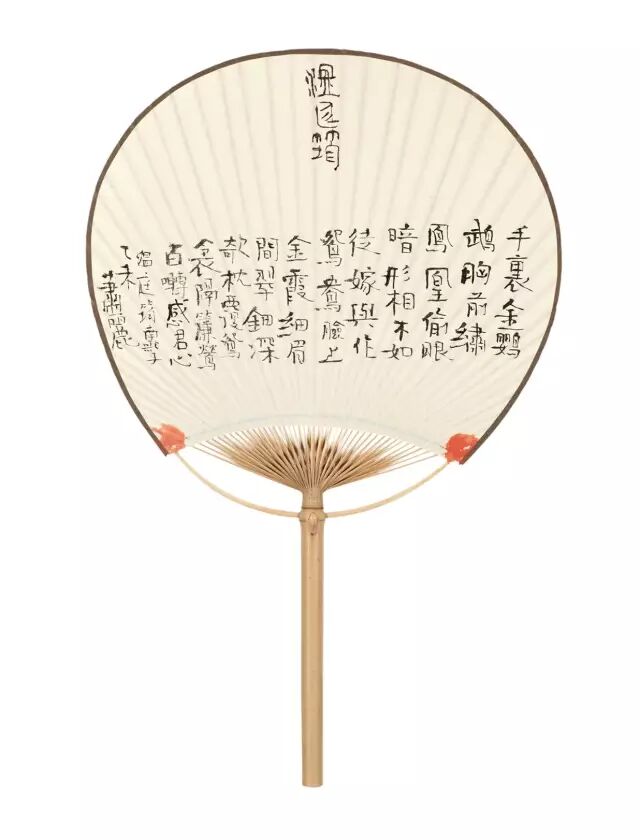 溫庭筠
手裏金鸚
鵡胸前繡
鳳凰偷眼
暗形相不如
從嫁與作
鴛鴦臉上
金霞細眉
間翠鈿深
欹枕覆鴛
衾隔簾鶯
百囀感君心
温庭筠
乙未